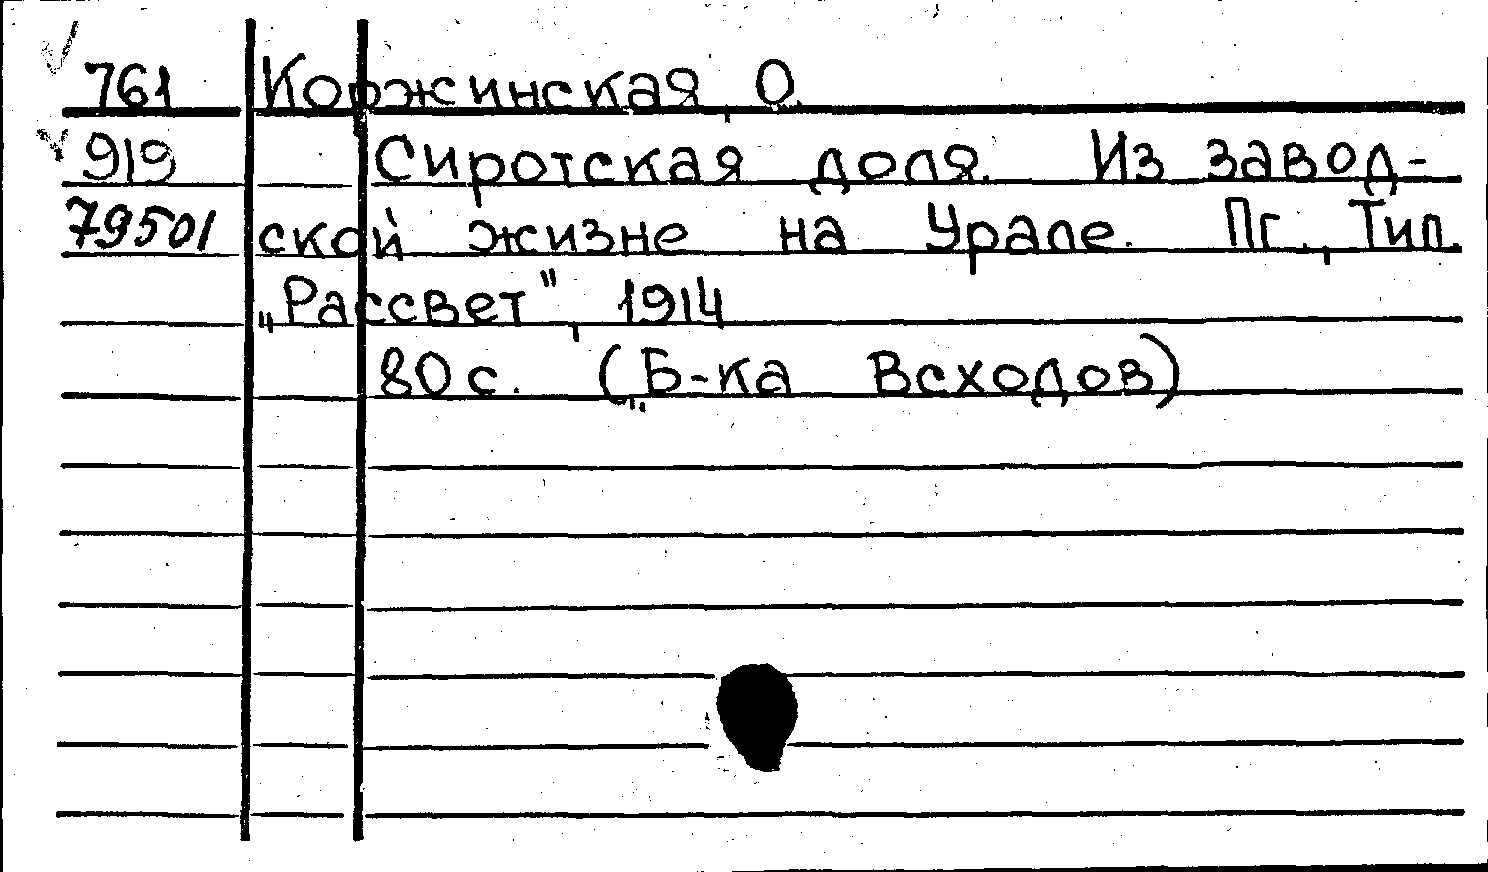 761 Коржинская, О.
919 Сиротская доля. Из завод-
79501 ской жизне на Урале. Пг., Тип.
„Рассвет", 1914
80 с. („Б-ка Всходов)